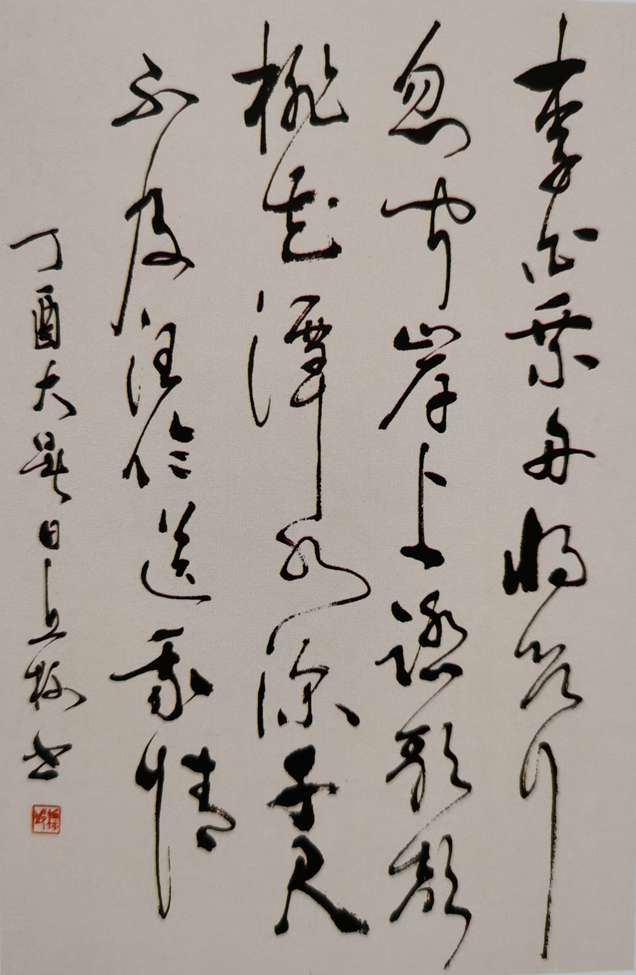 李白乘舟将欲行
忽闻岸上踏歌声
桃花潭水深千尺
不及汪伦送我情
丁酉大暑日书